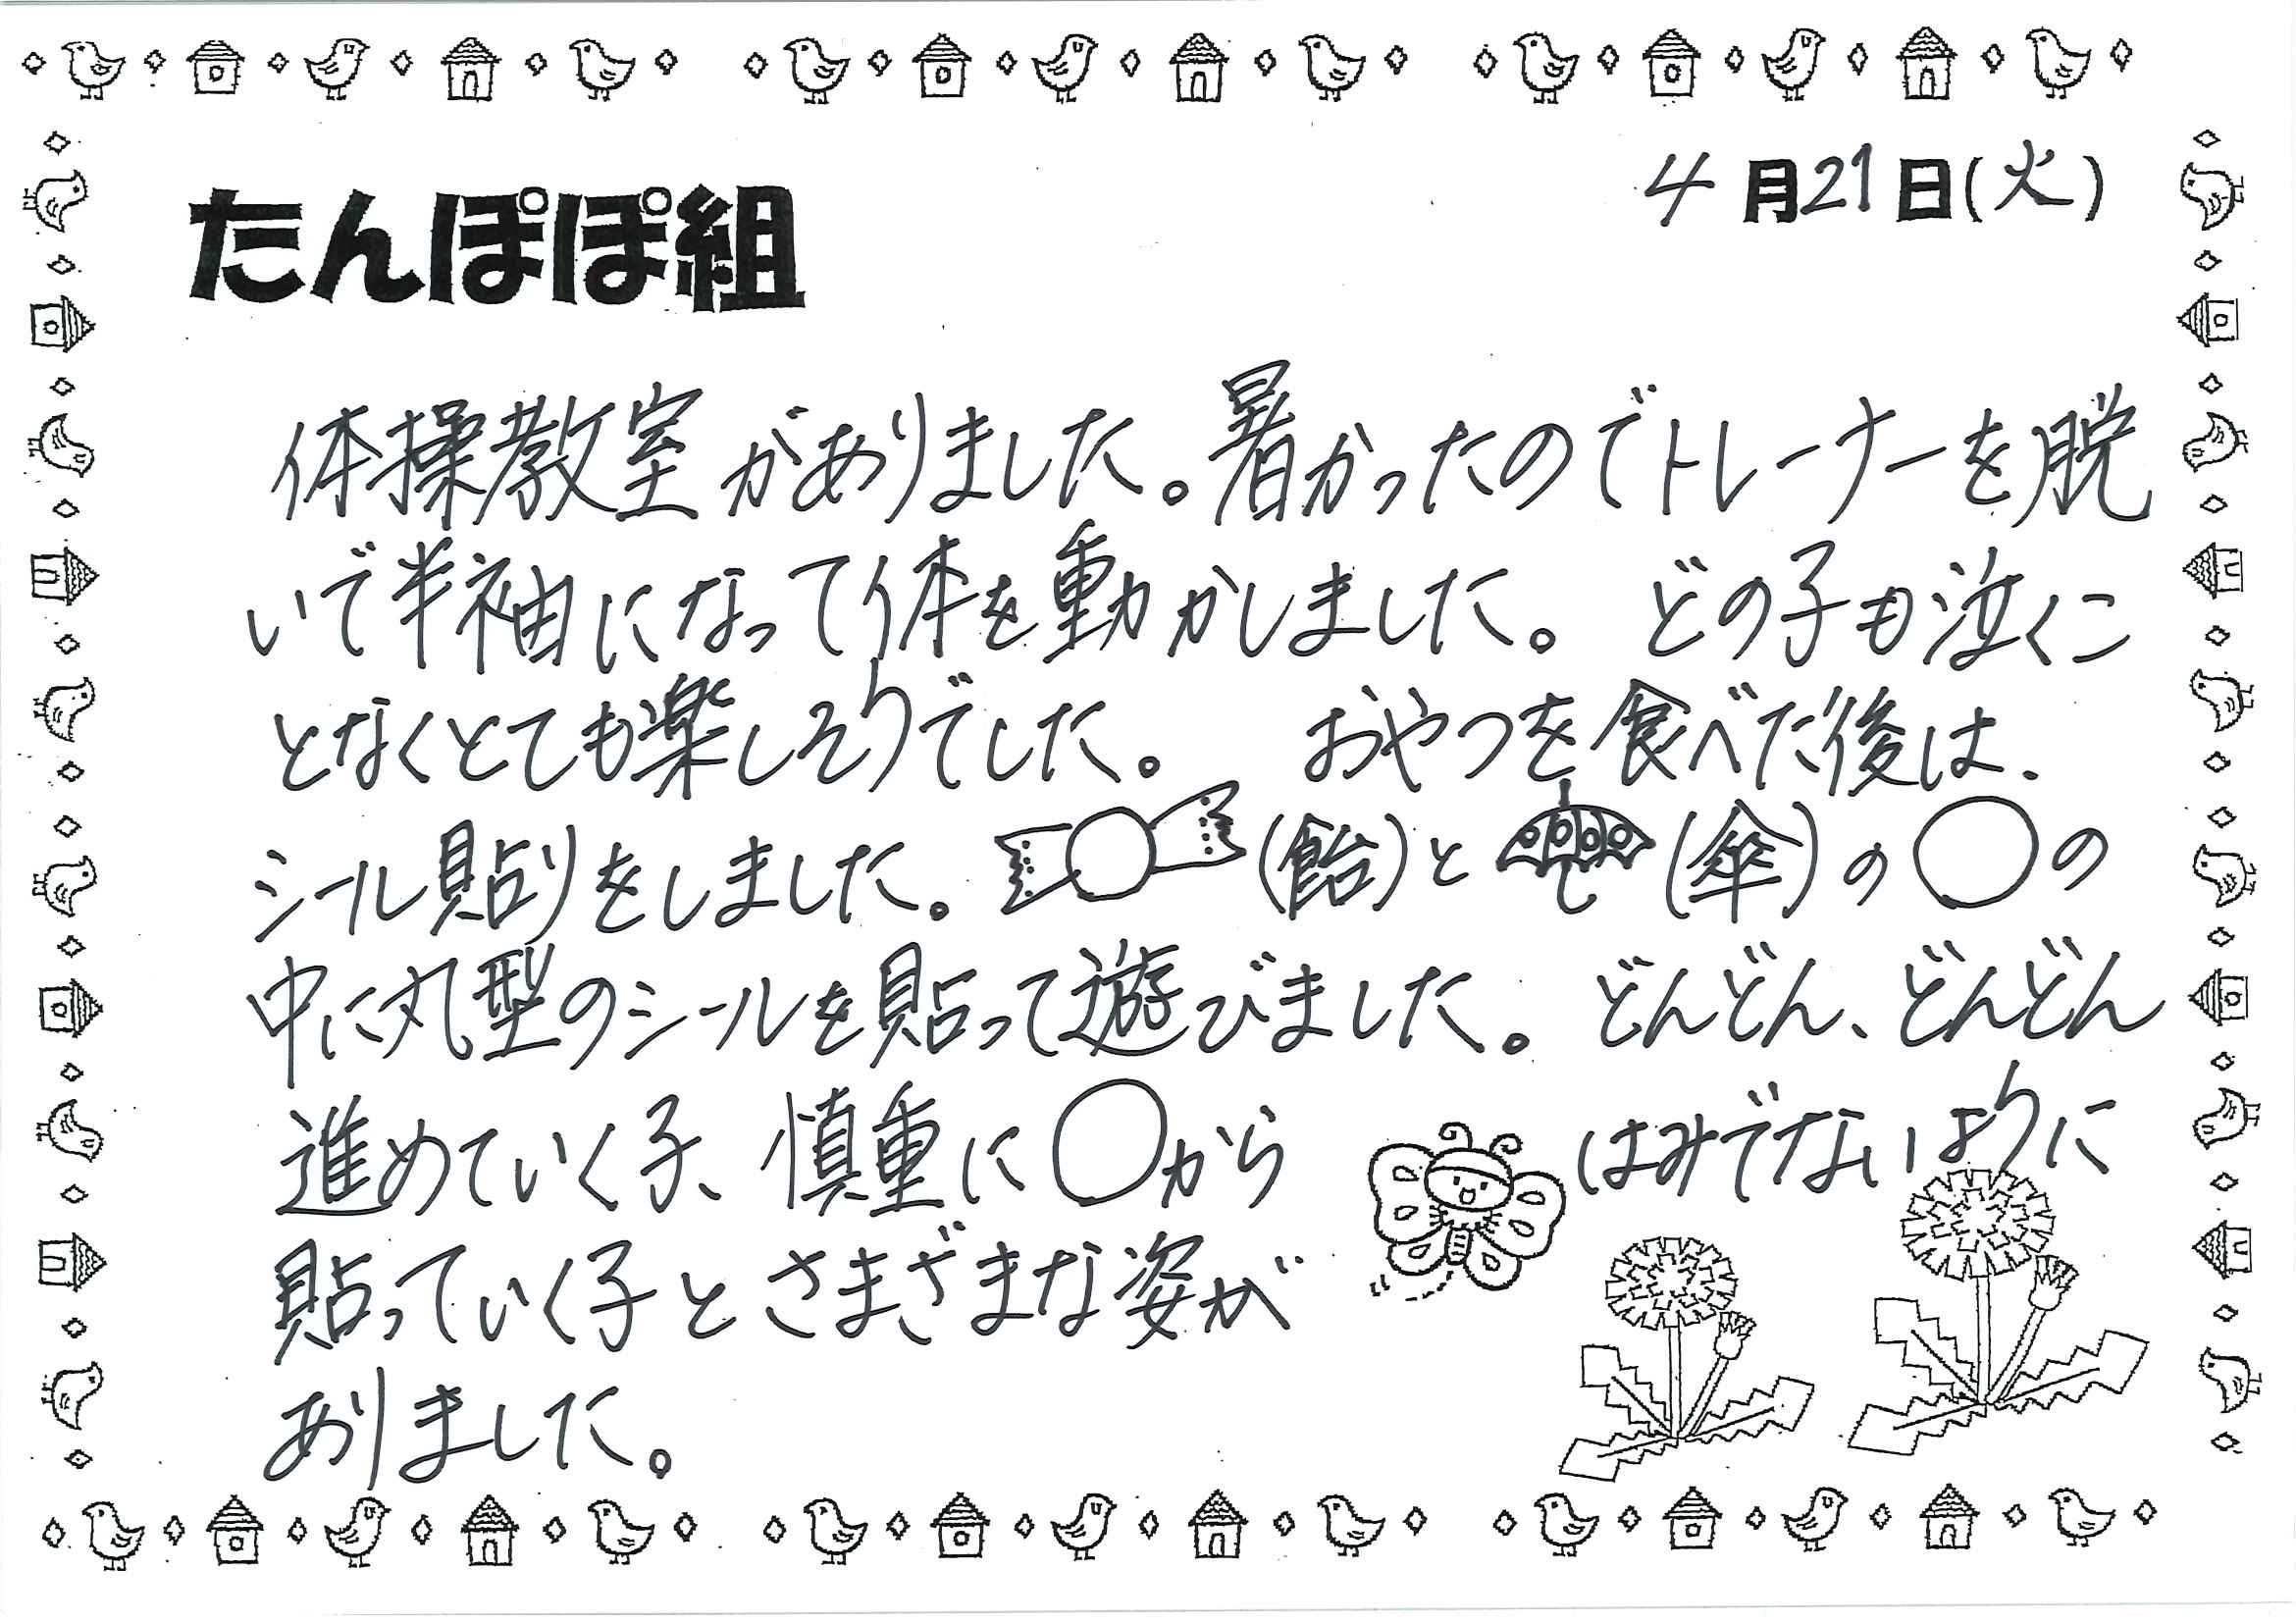 4月21日(火)
たんぽぽ組
体操教室がありました。暑かったのでトレーナーを脱
いで半袖になって体を動かしました。どの子も泣くこ
となくとても楽しそうでした。おやつを食べた後は、
シール貼りをしました。(飴)と(傘)の○の
中に丸型のシールを貼って遊びました。どんどん、どんどん
進めていく子、慎重に○からはみでないように
貼っていく子とさまざまな姿が
ありました。